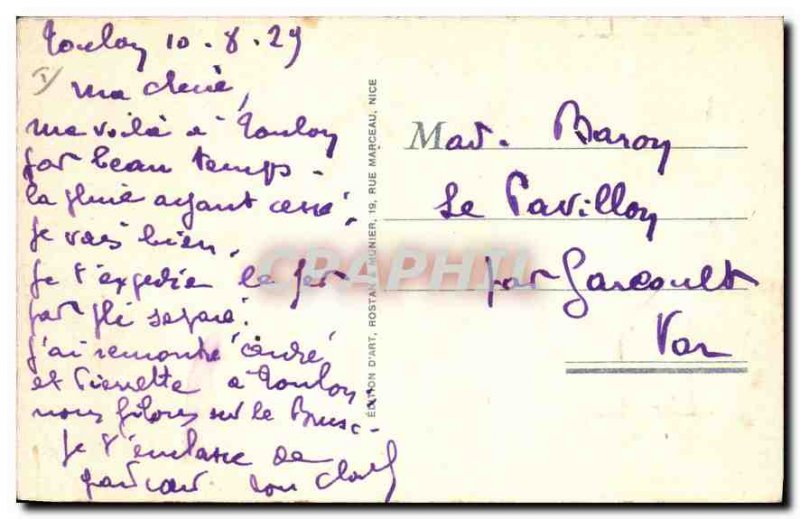 Toulon 10-8-29
Ma chérie,
me voilà à Toulon
par beau temps -
la pluie ayant cessé.
Je vais bien.
Je t'expédie le
par pli séparé.
J'ai remonté André
et Pierrette à Toulon
nous filons sur le Brusc -
Je t'embrasse de
ton
ÉDITION D'ART, ROSTAN & MUNIER, 19, RUE MARCEAU, NICE
Mad. Baron
Le Pavillon
par Garéoult
Var
CRAPHIL